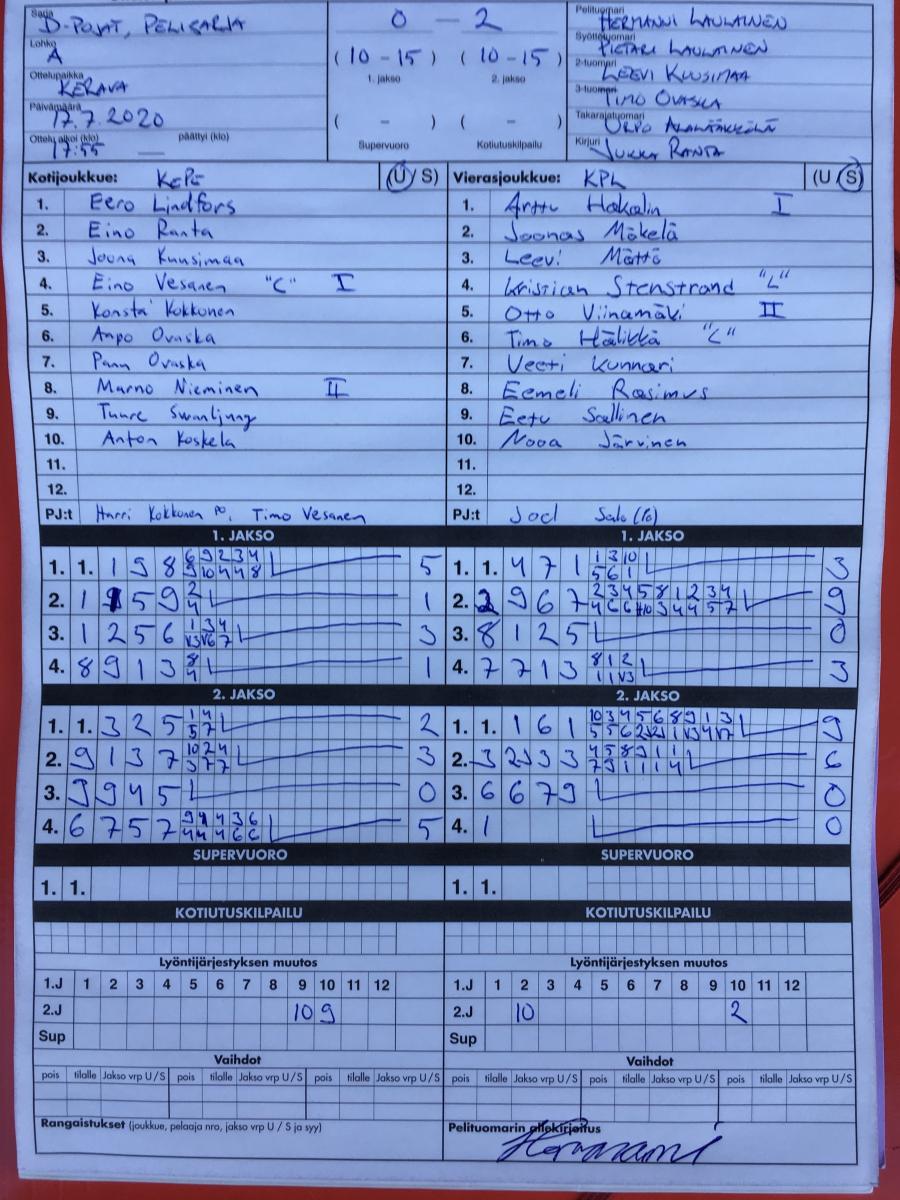 Sarja
D-POJAT, PELISARJA
Lohko
A
Ottelupaikka
KERAVA
Päivämäärä
17.7.2020
Ottelu alkoi (klo) päättyi (klo)
17:55 —
0 – 2
(10 – 15) (10 – 15)
1. jakso 2. jakso
( – ) ( – )
Supervuoro Kotiutuskilpailu
Pelituomari
HERMANNI LAULAINEN
Syöttötuomari
PIETARI LAULAINEN
2-tuomari
LEEVI KUUSIMAA
3-tuomari
TIMO OVASKA
Takarajatuomari
URPO
Kirjuri
JUKKA RANTA
Kotijoukkue: KEPE (U / S)
1. Eero Lindfors
2. Eino Ranta
3. Joona Kuusimaa
4. Eino Vesanen "C" I
5. Konsta Kokkonen
6. Anpo Ovaska
7. Panu Ovaska
8. Marno Nieminen II
9. Tuure Swanljung
10. Anton Koskela
11.
12.
PJ:t Harri Kokkonen PO, Timo Vesanen
Vierasjoukkue: KPL (U / S)
1. Arttu Hakalin I
2. Joonas Mäkelä
3. Leevi Mättö
4. Kristian Stenstrand "L"
5. Otto Viinamäki II
6. Timo Hälikkä "C"
7. Veeti Kunnari
8. Eemeli Rasimus
9. Eetu Sallinen
10. Nooa Järvinen
11.
12.
PJ:t Joel Salo (PO)
1. JAKSO
1. 1. 1 9 8 6 9 2 3 4 5
9 10 4 4 8
2. 1 9 5 9 2 1
4
3. 1 2 5 6 1 3 4 3
V3 V6 7
4. 8 9 1 3 8 1
4
1. JAKSO
1. 1. 4 7 1 1 3 10 3
5 6 1
2. 2 9 6 7 2 3 4 5 8 1 2 3 4 9
4 6 6 10 3 4 4 5 7
3. 8 1 2 5 0
4. 7 7 1 3 8 1 2 3
1 1 V3
2. JAKSO
1. 1. 3 2 5 1 4 2
5 7
2. 9 1 3 7 10 2 4 3
3 7 7
3. 9 9 4 5 0
4. 6 7 5 7 9 1 4 3 6 5
4 4 4 6 6
2. JAKSO
1. 1. 1 6 1 10 3 4 5 6 8 9 1 3 9
2. 3 3 3 4 5 8 9 1 1 6
7 9 1 1 1 4
3. 6 6 7 9 0
4. 1 0
SUPERVUORO
1. 1.
SUPERVUORO
1. 1.
KOTIUTUSKILPAILU
KOTIUTUSKILPAILU
Lyöntijärjestyksen muutos
1.J 1 2 3 4 5 6 7 8 9 10 11 12
2.J 10 9
Sup
Lyöntijärjestyksen muutos
1.J 1 2 3 4 5 6 7 8 9 10 11 12
2.J 10 2
Sup
Vaihdot
pois tilalle Jakso vrp U / S pois tilalle Jakso vrp U / S pois tilalle Jakso vrp U / S
Vaihdot
pois tilalle Jakso vrp U / S pois tilalle Jakso vrp U / S pois tilalle Jakso vrp U / S
Rangaistukset (joukkue, pelaaja nro, jakso vrp U / S ja syy)
Pelituomarin allekirjoitus